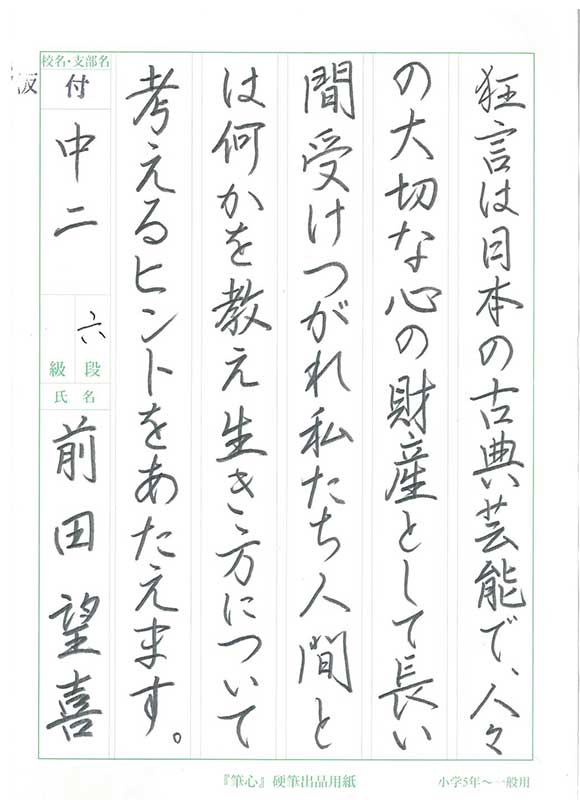 狂言は日本の古典芸能で、人々
の大切な心の財産として長い
間受けつがれ私たち人間と
は何かを教え生き方について
考えるヒントをあたえます。
校名・支部名
板付
中二
六
級 段
氏名
前田望喜
『筆心』硬筆出品用紙
小学5年〜一般用